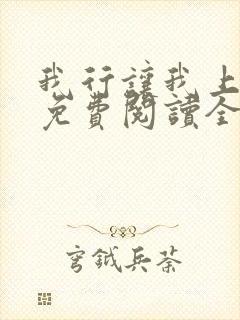 我行讓我上
免費閱讀全
穹鉞兵荼